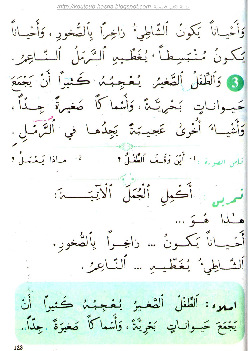 وَأَحْيَاناً يَكُونُ الشَّاطِئُ زَاخِراً بِالصُّخُورِ، وَأَحْيَاناً
يَكُونُ مُنْبَسِطاً، يُغَطِّيهِ الرَّمْلُ النَّاعِمُ.
3 وَالطِّفْلُ الصَّغِيرُ يُعْجِبُهُ كَثِيراً أَنْ يَجْمَعَ
حَيَوَانَاتٍ بَحْرِيَّةً، وَأَسْمَاكاً صَغِيرَةً جِدّاً،
وَأَشْيَاءَ أُخْرَى عَجِيبَةً يَجِدُهَا فِي الرَّمْلِ.
1- أَيْنَ وَقَفَ الطِّفْلُ؟ 2- مَاذَا يَعْمَلُ؟
تمرين: أَكْمِلِ الْجُمَلَ الْآتِيَةَ:
هٰذَا هُوَ ...
أَحْيَاناً يَكُونُ ... زَاخِراً بِالصُّخُورِ.
الشَّاطِئُ يُغَطِّيهِ ... النَّاعِمُ.
املاء: الطِّفْلُ الصَّغِيرُ يُعْجِبُهُ كَثِيراً أَنْ
يَجْمَعَ حَيَوَانَاتٍ بَحْرِيَّةً، وَأَسْمَاكاً صَغِيرَةً جِدّاً.